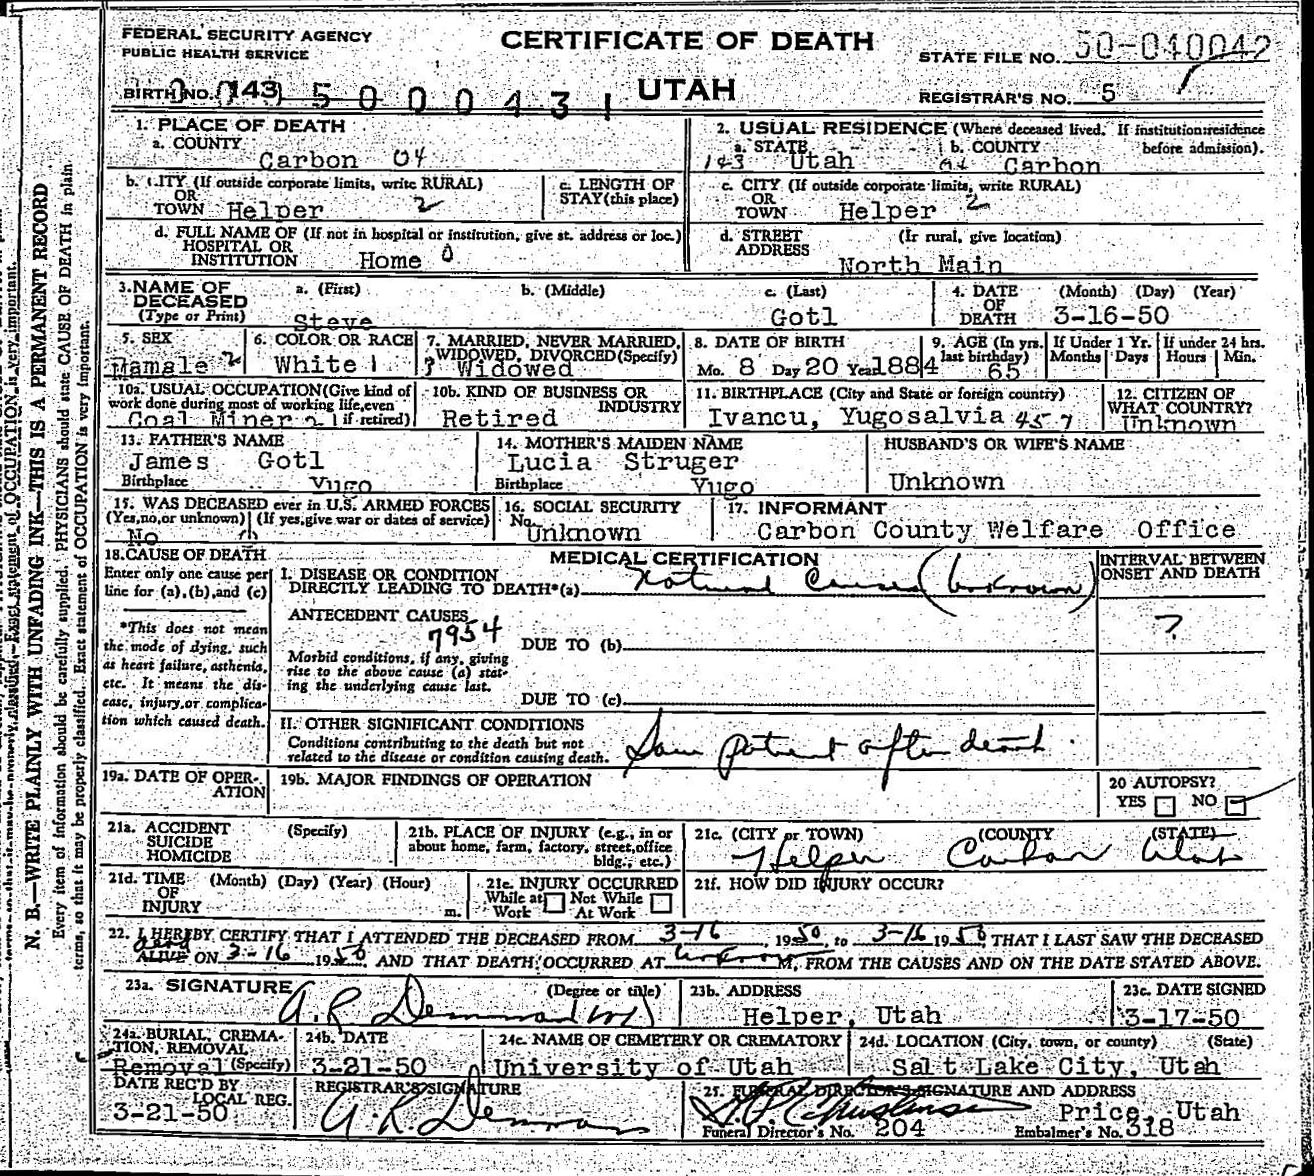 FEDERAL SECURITY AGENCY
PUBLIC HEALTH SERVICE
CERTIFICATE OF DEATH
UTAH
STATE FILE NO. 50-040042
BIRTH NO. (143) 5 0 0 0 4 3 1
REGISTRAR'S NO. 5
1. PLACE OF DEATH
a. COUNTY
Carbon 04
2. USUAL RESIDENCE (Where deceased lived. If institution:residence before admission).
a. STATE b. COUNTY
143 Utah 04 Carbon
b. CITY (If outside corporate limits, write RURAL)
OR
TOWN Helper 2
c. LENGTH OF
STAY (this place)
c. CITY (If outside corporate limits, write RURAL)
OR
TOWN Helper 2
d. FULL NAME OF (If not in hospital or institution, give st. address or loc.)
HOSPITAL OR
INSTITUTION Home 0
d. STREET (If rural, give location)
ADDRESS
North Main
3. NAME OF
DECEASED
(Type or Print)
a. (First) b. (Middle) c. (Last)
Steve Gotl
4. DATE (Month) (Day) (Year)
OF
DEATH 3-16-50
5. SEX
Mamale 2
6. COLOR OR RACE
White 1
7. MARRIED, NEVER MARRIED,
WIDOWED, DIVORCED (Specify)
3 Widowed
8. DATE OF BIRTH
Mo. 8 Day 20 Year 1884
9. AGE (In yrs.
last birthday)
65
If Under 1 Yr.
Months Days
If under 24 hrs.
Hours Min.
10a. USUAL OCCUPATION (Give kind of
work done during most of working life, even
if retired)
Coal Miner 21
10b. KIND OF BUSINESS OR
INDUSTRY
Retired
11. BIRTHPLACE (City and State or foreign country)
Ivancu, Yugosalvia 45-7
12. CITIZEN OF
WHAT COUNTRY?
Unknown
13. FATHER'S NAME
James Gotl
Birthplace Yugo
14. MOTHER'S MAIDEN NAME
Lucia Struger
Birthplace Yugo
HUSBAND'S OR WIFE'S NAME
Unknown
15. WAS DECEASED ever in U.S. ARMED FORCES
(Yes, no, or unknown) (If yes, give war or dates of service)
No
16. SOCIAL SECURITY
No.
Unknown
17. INFORMANT
Carbon County Welfare Office
18. CAUSE OF DEATH
Enter only one cause per
line for (a), (b), and (c)
*This does not mean
the mode of dying, such
as heart failure, asthenia,
etc. It means the dis-
ease, injury, or complica-
tion which caused death.
MEDICAL CERTIFICATION
INTERVAL BETWEEN
ONSET AND DEATH
I. DISEASE OR CONDITION
DIRECTLY LEADING TO DEATH*(a) Natural Cause (Unknown)
?
ANTECEDENT CAUSES
7954
DUE TO (b)
Morbid conditions, if any, giving
rise to the above cause (a) stat-
ing the underlying cause last.
DUE TO (c)
II. OTHER SIGNIFICANT CONDITIONS
Conditions contributing to the death but not
related to the disease or condition causing death.
Saw patient after death.
19a. DATE OF OPER-
ATION
19b. MAJOR FINDINGS OF OPERATION
20 AUTOPSY?
YES NO
21a. ACCIDENT (Specify)
SUICIDE
HOMICIDE
21b. PLACE OF INJURY (e.g., in or
about home, farm, factory, street, office
bldg., etc.)
21c. (CITY or TOWN) (COUNTY (STATE)
Helper Carbon Utah
21d. TIME (Month) (Day) (Year) (Hour)
OF
INJURY m.
21e. INJURY OCCURRED
While at Work Not While At Work
21f. HOW DID INJURY OCCUR?
22. I HEREBY CERTIFY THAT I ATTENDED THE DECEASED FROM 3-16, 1950, to 3-16 1950 THAT I LAST SAW THE DECEASED
dead
ALIVE ON 3-16 1950, AND THAT DEATH OCCURRED AT Unknown M, FROM THE CAUSES AND ON THE DATE STATED ABOVE.
23a. SIGNATURE (Degree or title)
A. R. Demman MD
23b. ADDRESS
Helper, Utah
23c. DATE SIGNED
3-17-50
24a. BURIAL, CREMA-
TION, REMOVAL
Removal (Specify)
24b. DATE
3-21-50
24c. NAME OF CEMETERY OR CREMATORY
University of Utah
24d. LOCATION (City, town, or county) (State)
Salt Lake City, Utah
DATE REC'D BY
LOCAL REG.
3-21-50
REGISTRAR'S SIGNATURE
A. R. Demman
25. FUNERAL DIRECTOR'S SIGNATURE AND ADDRESS
Price, Utah
Funeral Director's No. 204 Embalmer's No. 318
N. B.—WRITE PLAINLY WITH UNFADING INK—THIS IS A PERMANENT RECORD
Every item of information should be carefully supplied. PHYSICIANS should state CAUSE OF DEATH in plain
terms, so that it may be properly classified. Exact statement of OCCUPATION is very important.